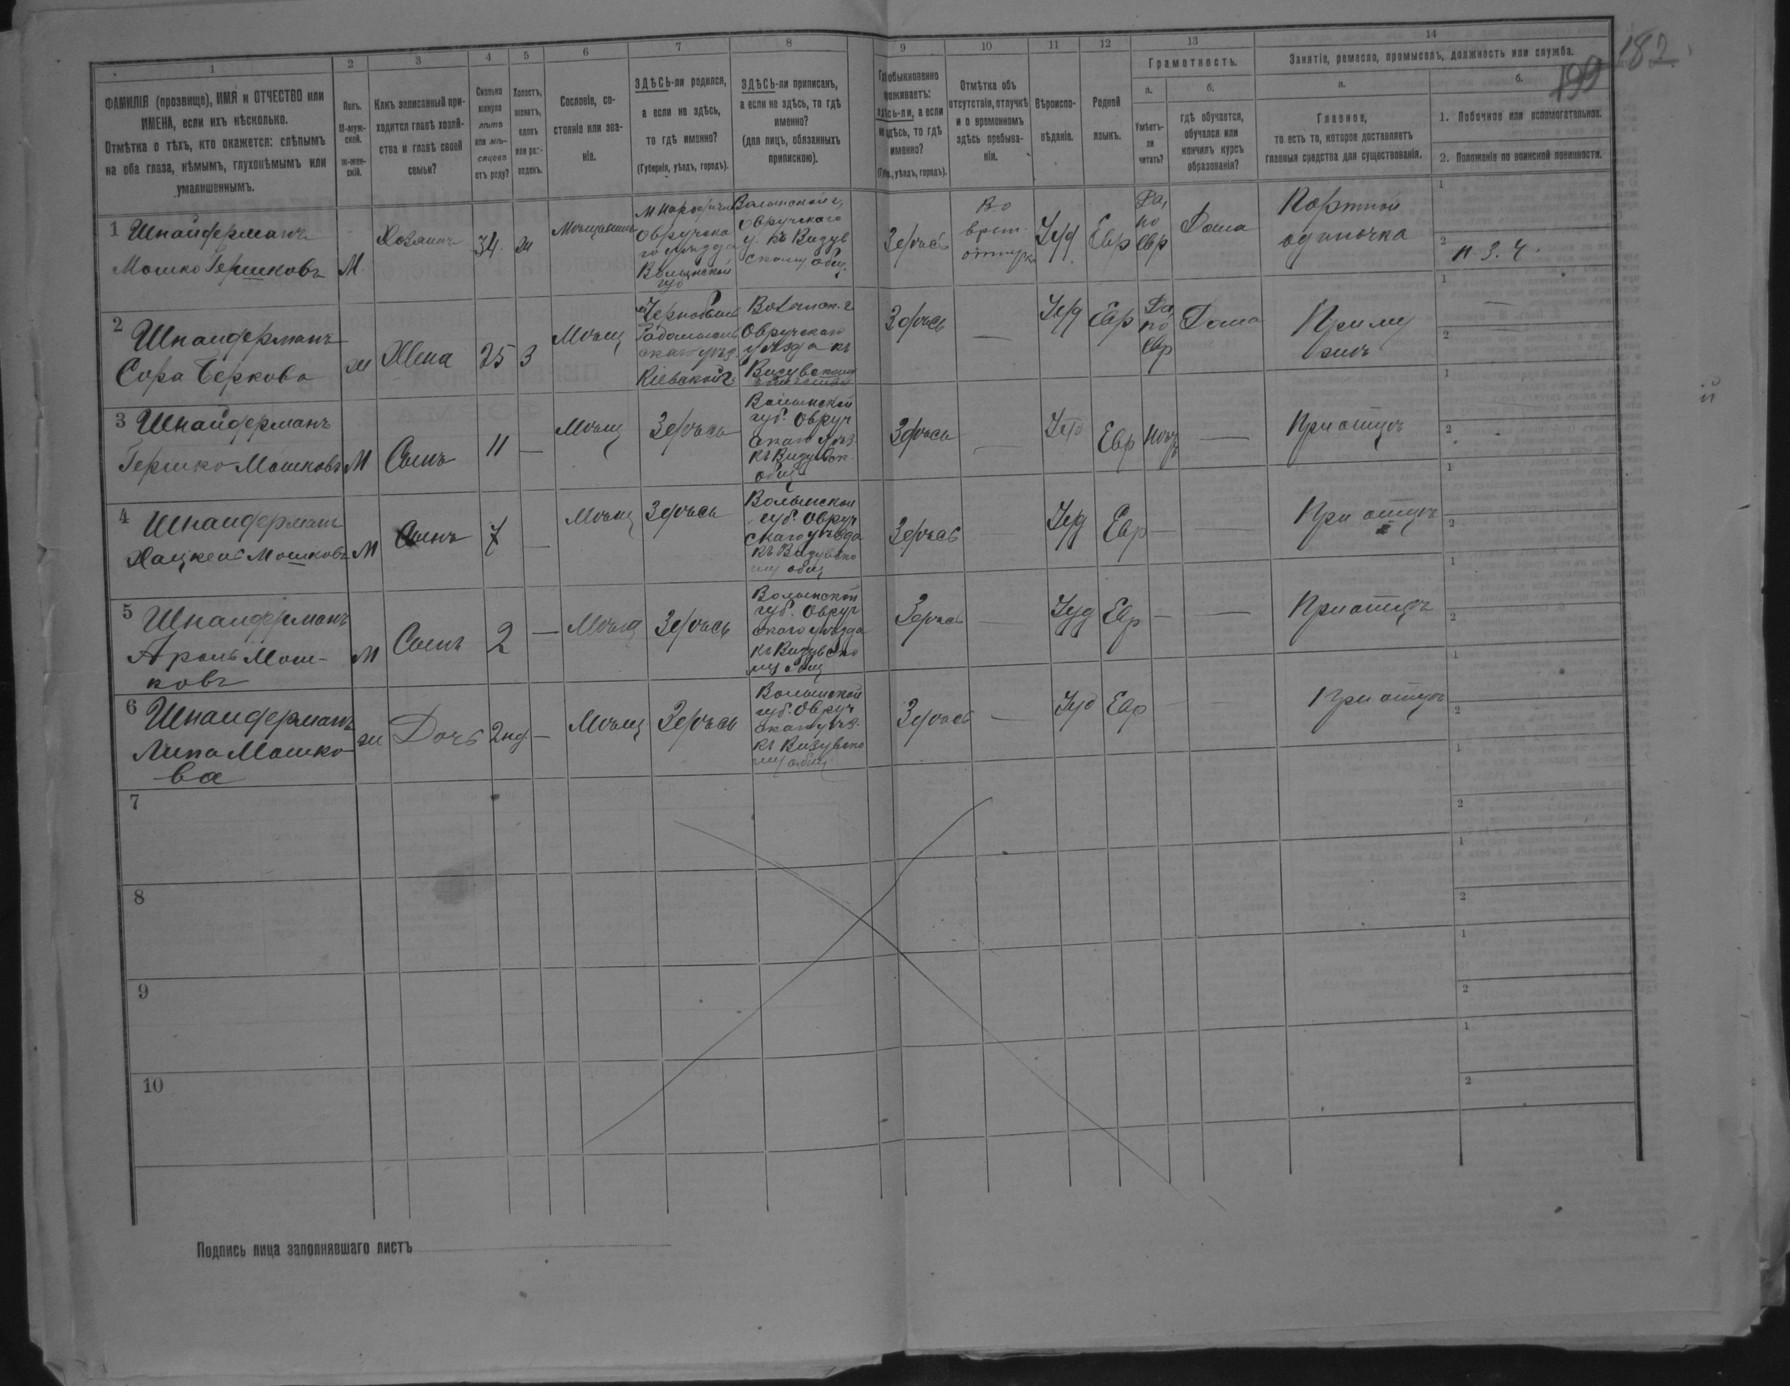 1 2 3 4 5 6 7 8 9 10 11 12 13 14
182
199
ФАМИЛІЯ (прозвище), ИМЯ и ОТЧЕСТВО или
ИМЕНА, если ихъ нѣсколько.
Отмѣтка о тѣхъ, кто окажется: слѣпымъ
на оба глаза, нѣмымъ, глухонѣмымъ или
умалишеннымъ.
Полъ.
М-муж-
ской.
ж-жен-
скій.
Какъ записанный при-
ходится главѣ хозяй-
ства и главѣ своей
семьи?
Сколько
минуло
лѣтъ
или мѣ-
сяцевъ
отъ роду?
Холостъ,
женатъ,
вдовъ
или раз-
веденъ.
Сословіе, со-
стояніе или зва-
ніе.
ЗДѢСЬ-ли родился,
а если не здѣсь,
то гдѣ именно?
(Губернія, уѣздъ, городъ).
ЗДѢСЬ-ли приписанъ,
а если не здѣсь, то гдѣ
именно?
(для лицъ, обязанныхъ
припискою).
Гдѣ обыкновенно
проживаетъ:
здѣсь-ли, а если
не здѣсь, то гдѣ
именно?
(Губ., уѣздъ, городъ).
Отмѣтка объ
отсутствіи, отлучкѣ
и о временномъ
здѣсь пребыва-
ніи.
Вѣроиспо-
вѣданіе.
Родной
языкъ.
Грамотность.
а.
Умѣетъ-
ли
читать?
б.
гдѣ обучается,
обучался или
кончилъ курсъ
образованія?
Занятіе, ремесло, промыселъ, должность или служба.
а.
Главное,
то есть то, которое доставляетъ
главныя средства для существованія.
б.
1. Побочное или вспомогательное.
2. Положеніе по воинской повинности.
1 Шнайдерманъ
Мошко Гершковъ
М
Хозяинъ
34
ж
Мѣщанинъ
Овручска
го уѣзда
Волынской
губ
Волынской г.
Овручского
у.
Здѣсь
Во
врем.
отпуск
Іуд
Евр
Да,
по
Евр
Дома
Портной
одиночка
1
2
н. 3. ч.
2 Шнаидерманъ
Сора Беркова
ж
Жена
25
З
Мѣщ
Кіевской г.
Овручского
уѣзда къ
Здѣсь
—
Іуд
Евр
Да
по
Евр
Дома
При му
жѣ
1 —
2
3 Шнайдерманъ
Гершко Мошковъ
М
Сынъ
11
—
Мѣщ
Здѣсь
Волынской
губ. Овруч
общ
Здѣсь
—
Іуд
Евр
—
При отцѣ
1
2
4 Шнаидерманъ
Хацкель Мошковъ
М
Сынъ
7
—
Мѣщ
Здѣсь
Волынской
губ. Овруч
скаго уѣзда
Здѣсь
—
Іуд
Евр
—
—
При отцѣ
1
2
5 Шнаидерманъ
Аронь Мош-
ковъ
М
Сынъ
2
—
Мѣщ
Здѣсь
Волынской
губ. Овруч
скаго уѣзда
Здѣсь
—
Іуд
Евр
—
—
При отцѣ
1
2
6 Шнаидерманъ
Липа Мошко-
ва
ж
Дочь
2 нд
—
Мѣщ
Здѣсь
Волынской
губ. Овруч
Здѣсь
—
Іуд
Евр
—
—
При отцѣ
1
2
7
1
2
8
1
2
9
1
2
10
1
2
Подпись лица заполнявшаго листъ